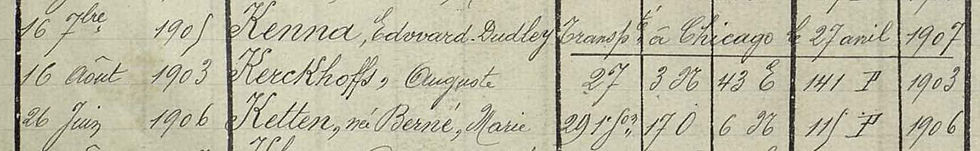 16 7bre 1905 Kenna, Edouard-Dudley Transpté à Chicago le 27 avril 1907
16 Août 1903 Kerckhoffs, Auguste 27 3 N 43 E 141 P 1903
26 Juin 1906 Ketten, née Berné, Marie 29 170 6 N 115 P 1906